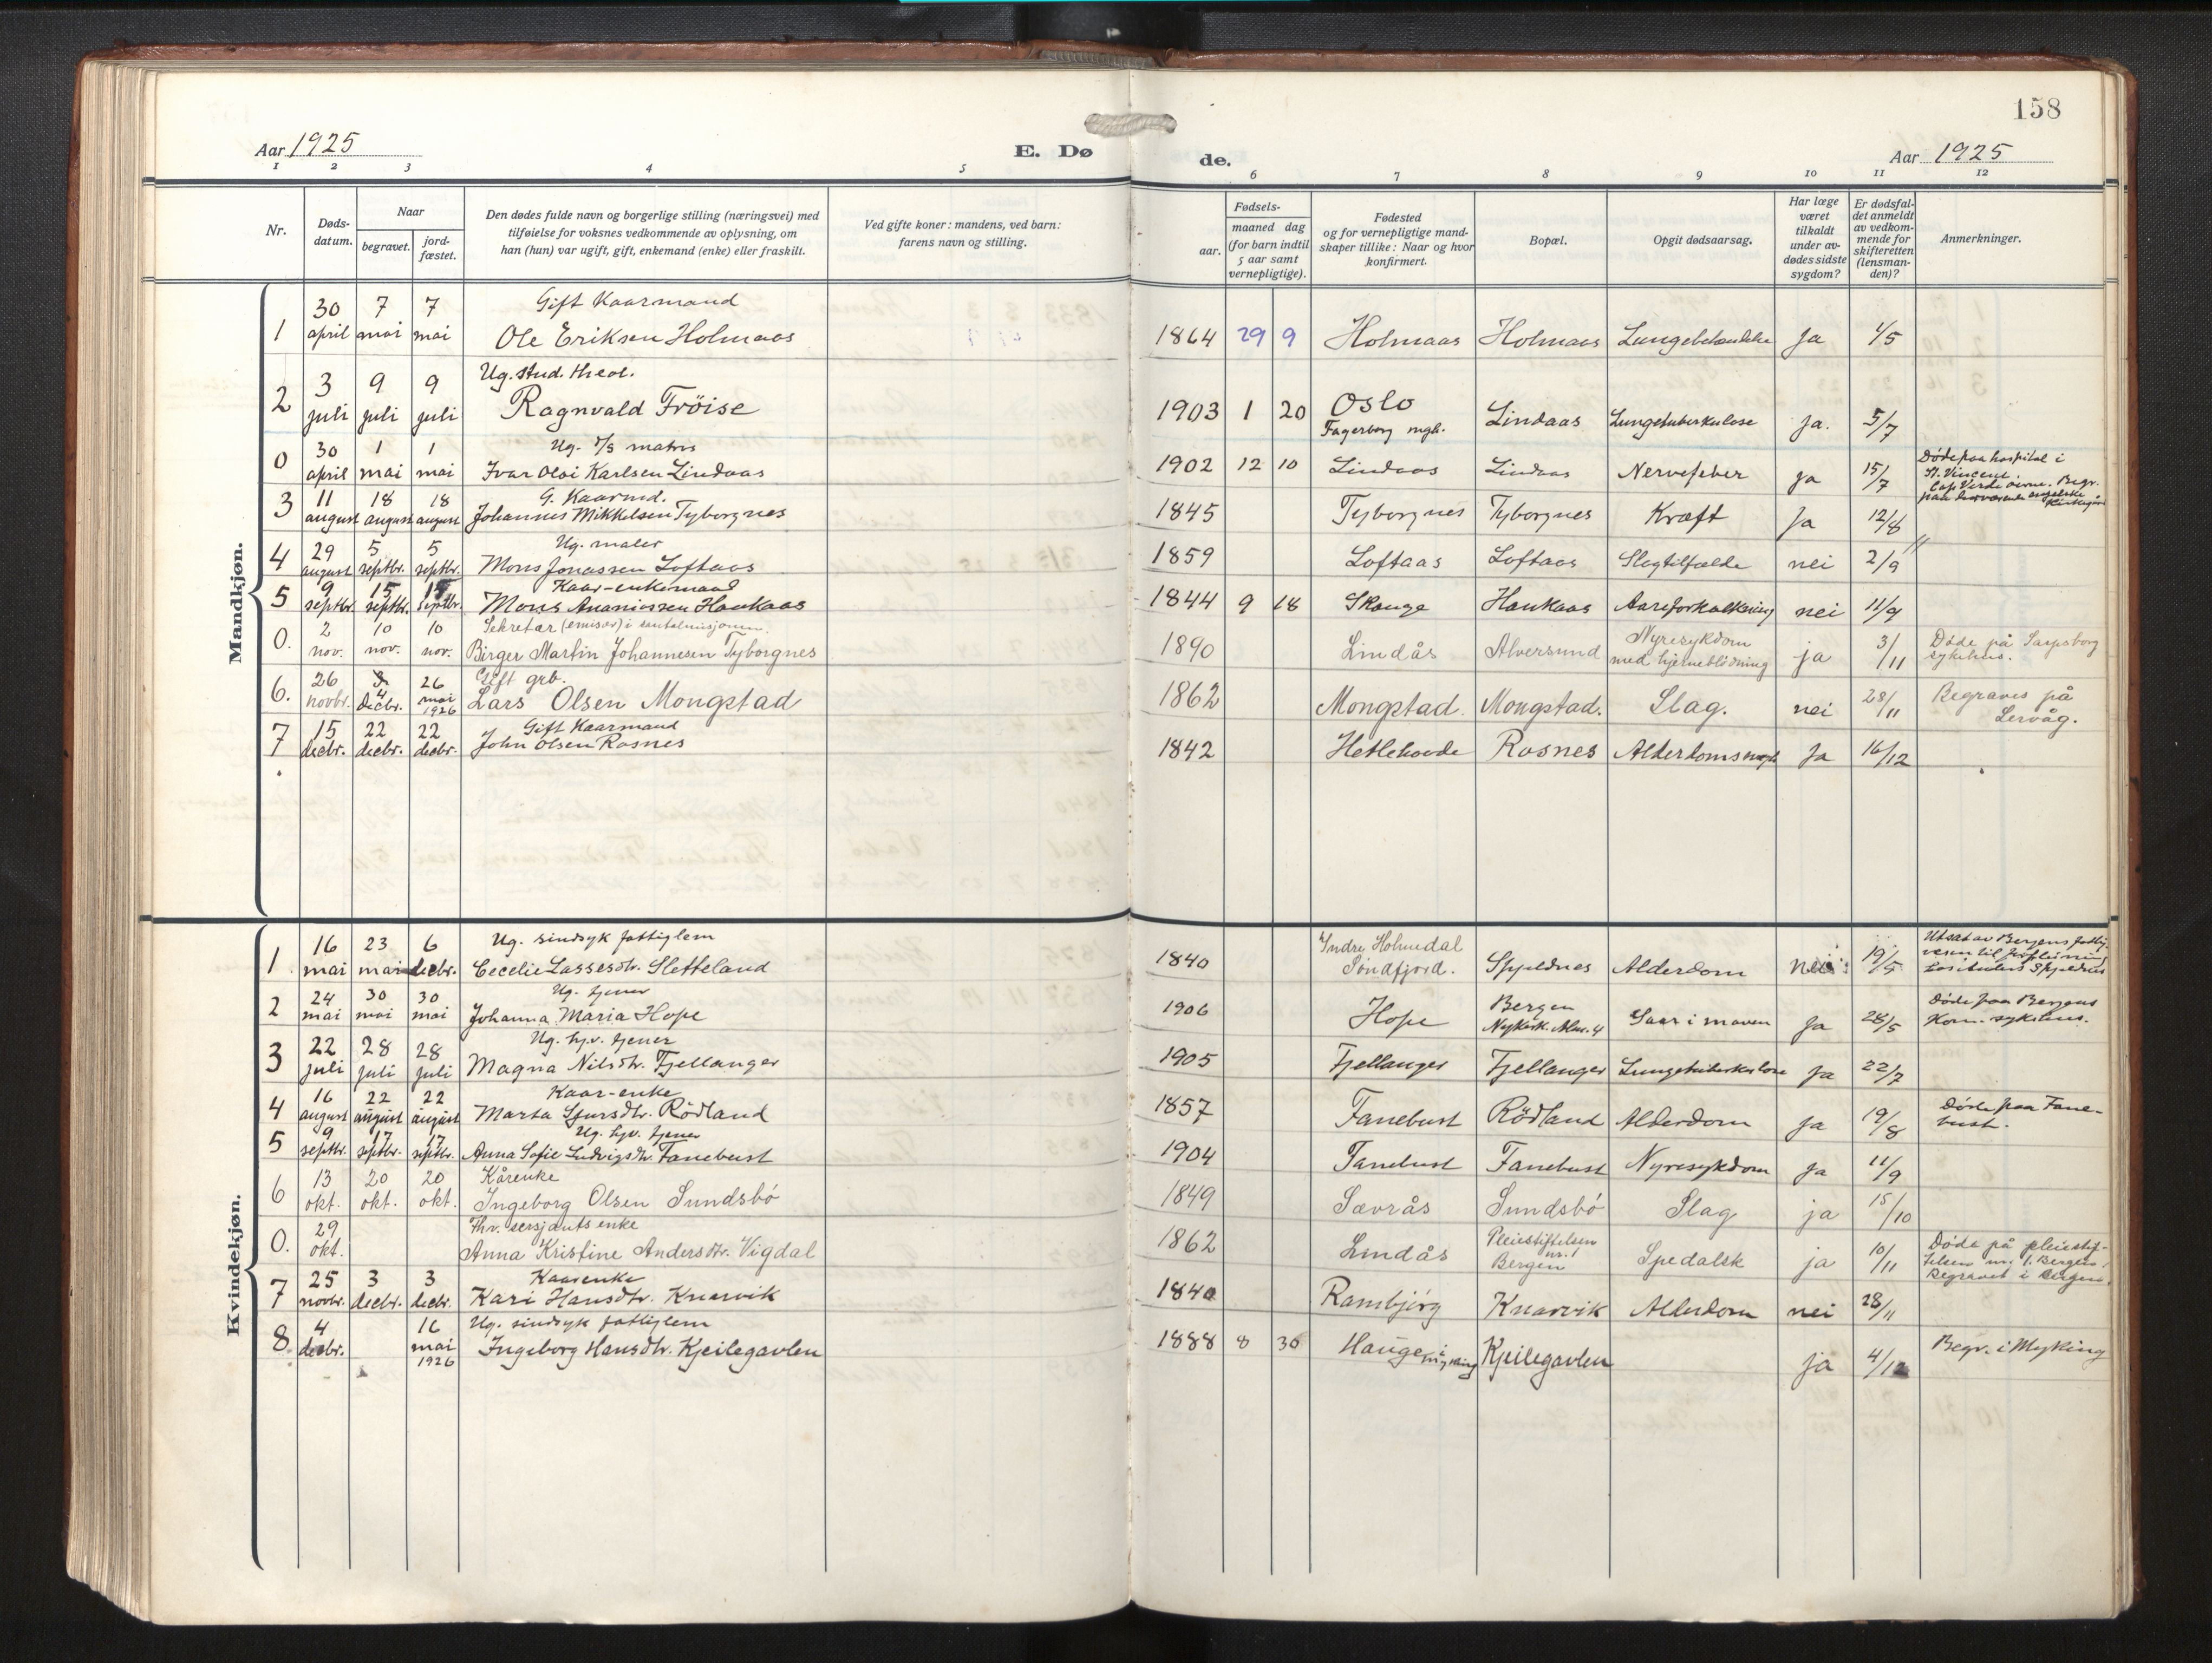 158
Aar 1925
E. Dø
de.
Aar 1925
1 2 3 4 5 6 7 8 9 10 11 12
Nr.
Døds-
datum.
Naar
begravet.
jord-
fæstet.
Den dødes fulde navn og borgerlige stilling (næringsvei) med
tilføielse for voksnes vedkommende av oplysning, om
han (hun) var ugift, gift, enkemand (enke) eller fraskilt.
Ved gifte koner: mandens, ved barn:
farens navn og stilling.
Fødsels-
aar.
maaned dag
(for barn indtil
5 aar samt
vernepligtige).
Fødested
og for vernepligtige mand-
skaper tillike: Naar og hvor
konfirmert.
Bopæl.
Opgit dødsaarsag.
Har læge
været
tilkaldt
under av-
dødes sidste
sygdom?
Er dødsfal-
det anmeldt
av vedkom-
mende for
skifteretten
(lensman-
den)?
Anmerkninger.
Mandkjøn.
30 7 7 Gift Kaarmand
1 april mai mai Ole Eriksen Holmaas 1864 29 9 Holmaas Holmaas ja 1/5
3 9 9 Ug. stud. theol.
2 juli juli juli Ragnvald Fröise 1903 1 20 Oslo Lindaas Lungetuberkulose ja. 5/7
Fagerborg mgh.
30 1 1 Ug. matros
0 april mai mai Ivar Oloi Karlsen Lindaas 1902 12 10 Lindaas Lindaas Nervefeber ja 15/7 Døde paa hospital i
St. Vincent,
Cap Verde øerne. Begr.
paa derværende engelske
kirkegård
11 18 18 G. Kaarmd.
3 august august august Johannes Mikkelsen Tyborgnes 1845 Tyborgnes Tyborgnes Kræft ja 12/8
29 5 5 Ug. maler
4 august septbr. septbr. Mons Jonassen Loftaas 1859 Loftaas Loftaas Slagtilfælde nei 2/9
9 15 15 Kaar-enkemand
5 septbr. septbr. septbr. Mons Ananiassen Haukaas 1844 9 18 Skauge Haukaas Aareforkalkning nei 11/9
2 10 10 Sekretær (emisær) i santalmisjonen.
0. nov. nov. nov. Birger Martin Johannesen Tyborgnes 1890 Lindås Alversund Nyresykdom
med hjerneblödning ja 3/11 Døde på Sarpsborg
sykehus.
26 4 26 Gift grb.
6. novbr. decbr. mai 1926 Lars Olsen Mongstad 1862 Mongstad. Mongstad. Slag. nei 28/11 Begraves på
Lervåg.
15 22 22 Gift Kaarmand
7 decbr. decbr. decbr. John Olsen Rosnes 1842 Rosnes ja 16/12
Kvindekjøn.
16 23 6 Ug. sindsyk fattiglem
1 mai mai decbr. Cecelie Lassesdtr. Sletteland 1840 Indre Holmedal
Søndfjord. Alderdom nei 19/5 Utsat av Bergens fattig-
vesen til forpleining
24 30 30 Ug. tjener
2 mai mai mai Johanna Maria Hope 1906 Hope Bergen
Nykirk. Alm. 4 Saar i maven ja 28/5 Døde paa Bergens
Kom. sykehus.
22 28 28 Ug. hjv. tjener
3 juli juli juli Magna Nilsdtr. Fjellanger 1905 Fjellanger Fjellanger Lungetuberkulose ja 22/7
16 22 22 Kaar-enke
4 august august august Marta Sjursdtr. Rödland 1857 Fanebust Rödland Alderdom ja 19/8 Døde paa Fane-
bust.
9 17 17 Ug. hjv. tjener
5 septbr. septbr. septbr. Anna Sofie Ludvigsdtr. Fanebust 1904 Fanebust Fanebust Nyresykdom ja 11/9
13 20 20 Kårenke
6 okt. okt. okt. Ingeborg Olsen Sundsbö 1849 Sævrås Sundsbö Slag ja 15/10
29 Fhv. sersjants enke
0. okt. Anna Kristine Andersdtr. Vigdal 1862 Lindås Pleiestiftelsen
nr. 1
Bergen Spedalsk ja 10/11 Døde på pleiestif-
telsen nr. 1. Bergen.
Begravet i Bergen.
25 3 3 Kaarenke
7 novbr. decbr. decbr. Kari Hansdtr. Knarvik 1840 Ramsbjörg Knarvik Alderdom nei 28/11
4 16 Ug. sindsyk fattiglem
8 decbr. mai 1926 Ingeborg Hansdtr. Kjeilegavlen 1888 8 30 Hauge i
Myking Kjeilegavlen ja 4/12 Begr. i Myking